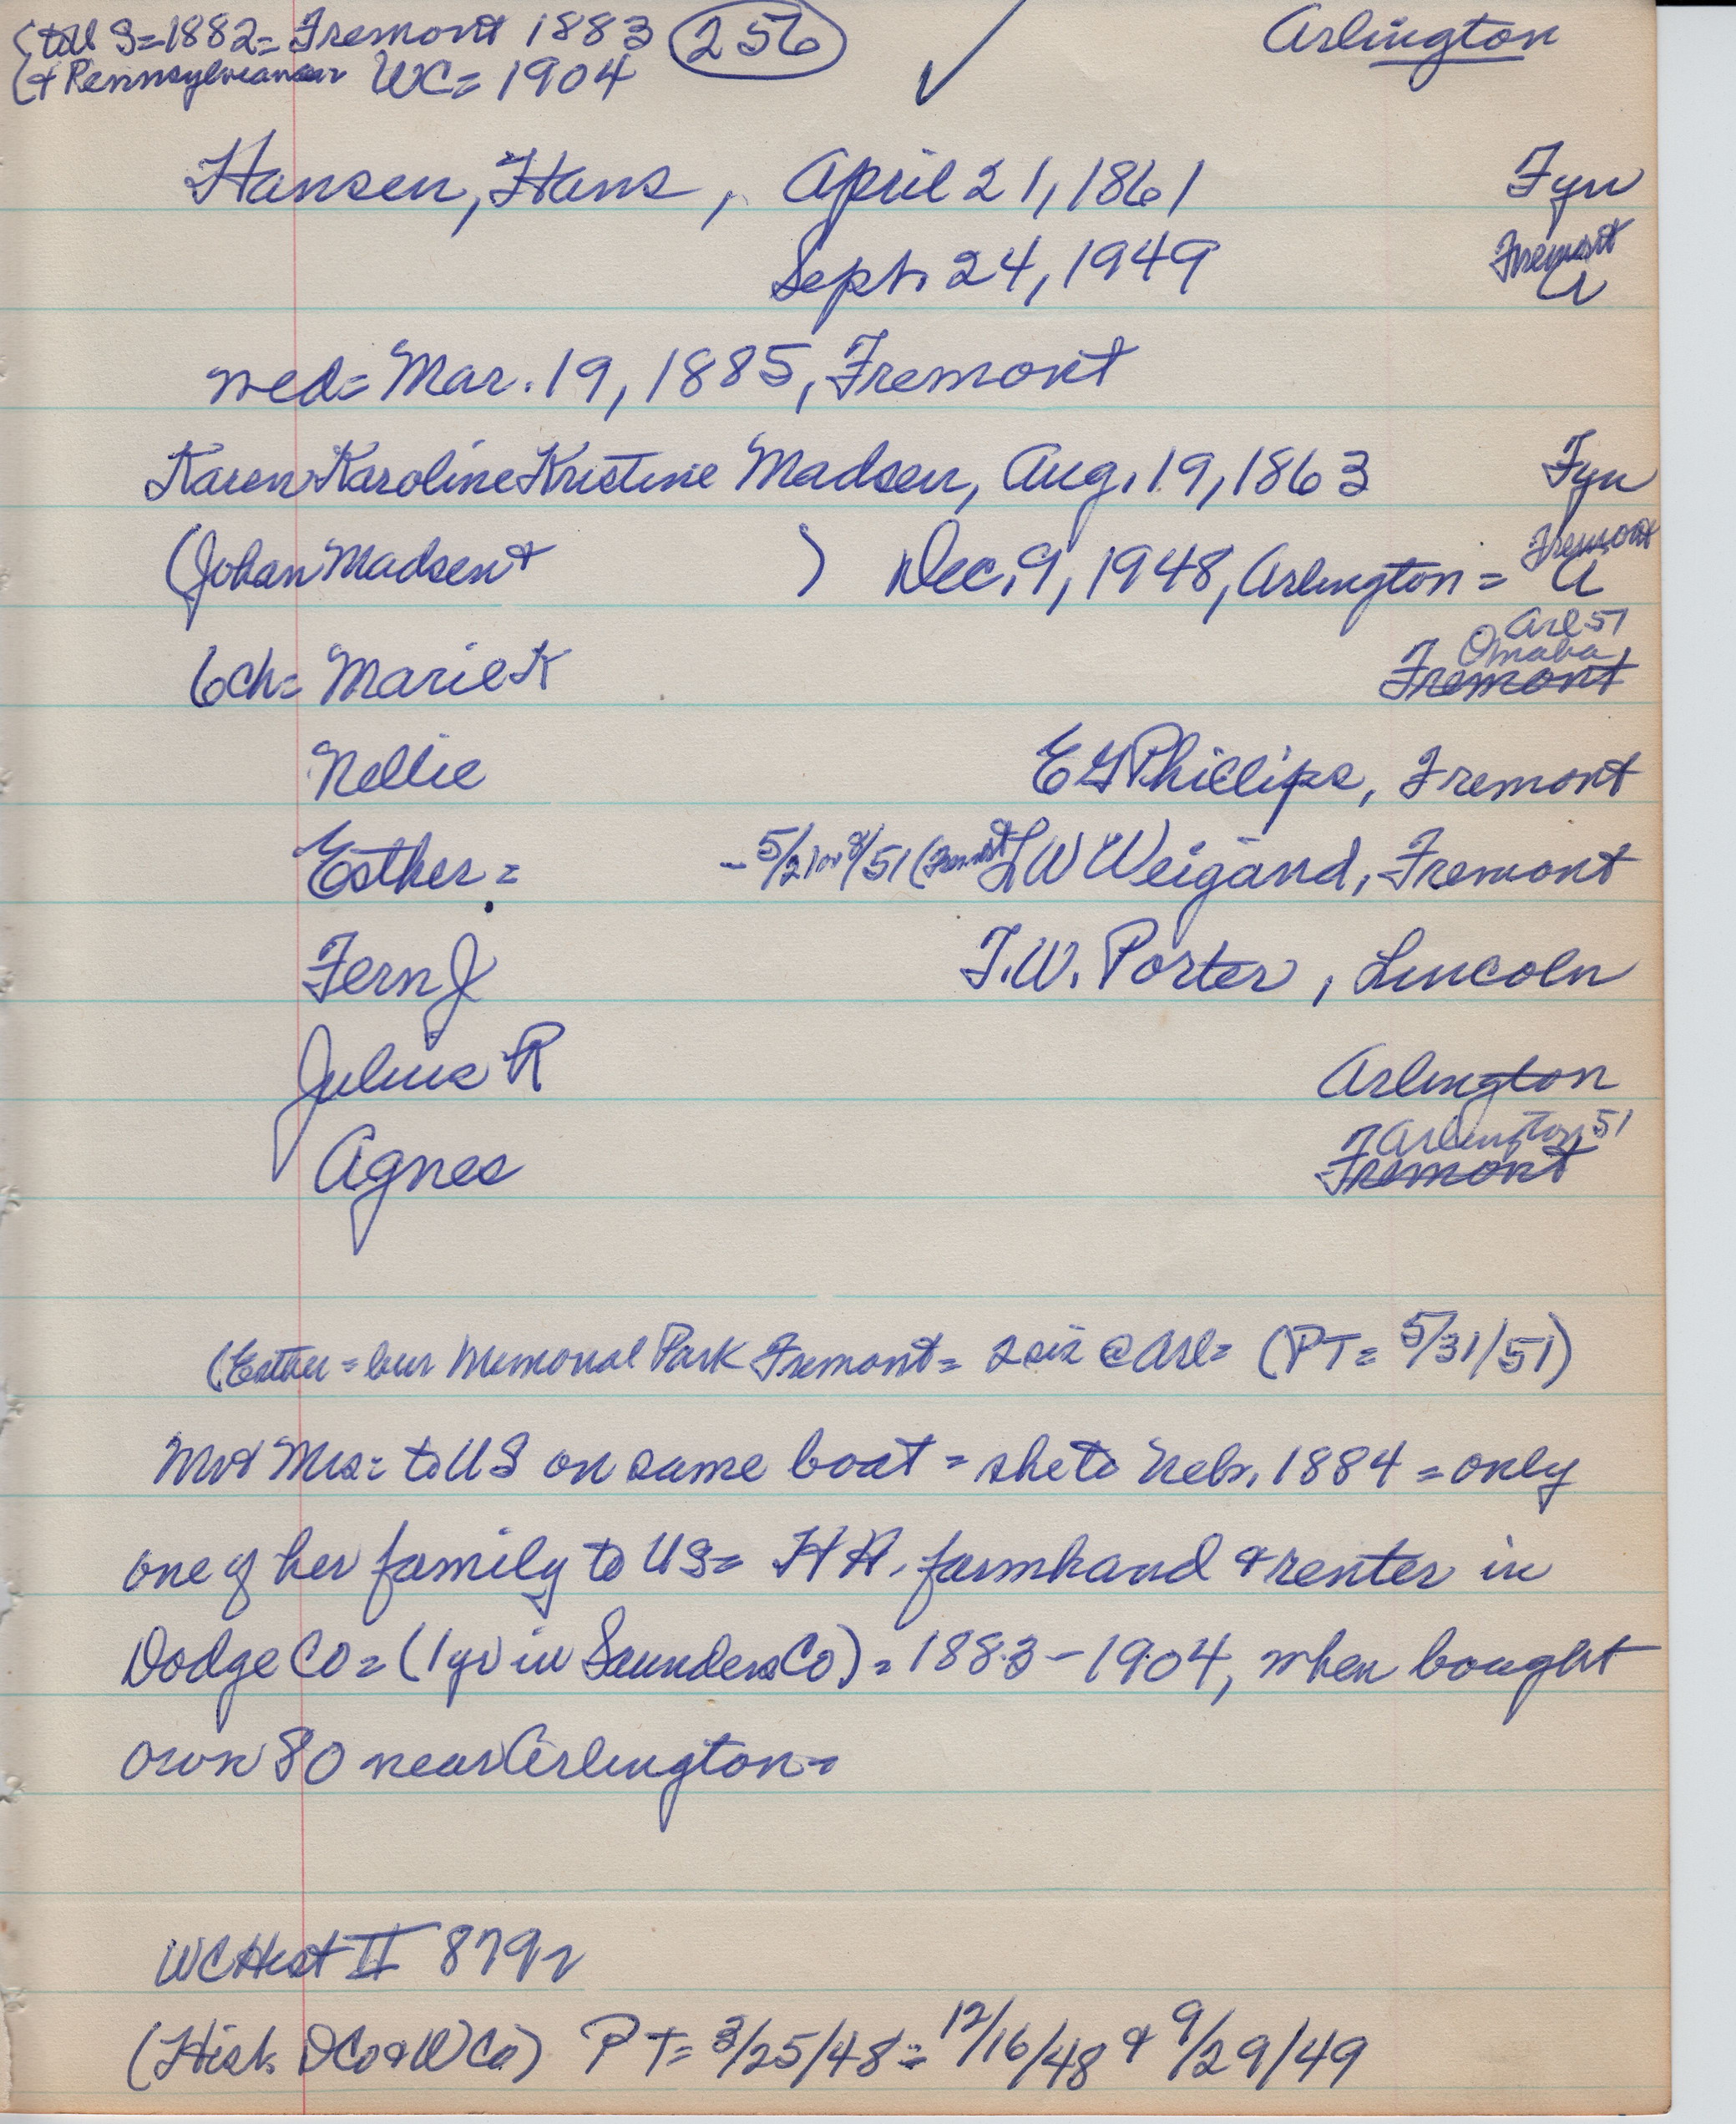 (to U S = 1882 = Fremont 1883 (256) ✓ Arlington
(+ Pennsylvania WC = 1904
Hansen, Hans, April 21, 1861 Fyn
Sept. 24, 1949 Fremont
a
wed = Mar. 19, 1885, Fremont
Karen Karoline Kristine Madsen, Aug. 19, 1863 Fyn
(Johan Madsen + ) Dec. 9, 1948, Arlington = Fremont
a
Arl 51
Omaha
6 ch = Marie K Fremont
Nellie E G Phillips, Fremont
Esther = - 5/21 or 8/51 (Fremont L W Weigand, Fremont
Fern J T. W. Porter, Lincoln
Julius R Arlington
Arlington 51
Agnes Fremont
(Esther = bur Memorial Park Fremont = @ Arl = (PT = 5/31/51)
Mr & Mrs = to U S on same boat = she to Neb. 1884 = only
one of her family to US = H H. farmhand & renter in
Dodge Co = (1 yr in Saunders Co) = 1883 - 1904, when bought
own 80 near Arlington =
WC Hist II 879
(Hist. D Co & W Co) PT = 3/25/48 = 12/16/48 & 9/29/49